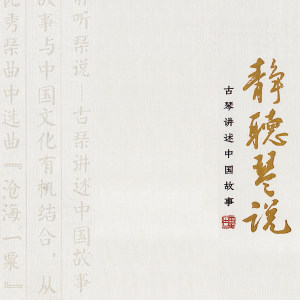 静聽琴说
古琴讲述中国故事
听琴说——古琴讲述中国故事
故事与中国文化有机结合，从
优秀琴曲中选曲『沧海一粟』